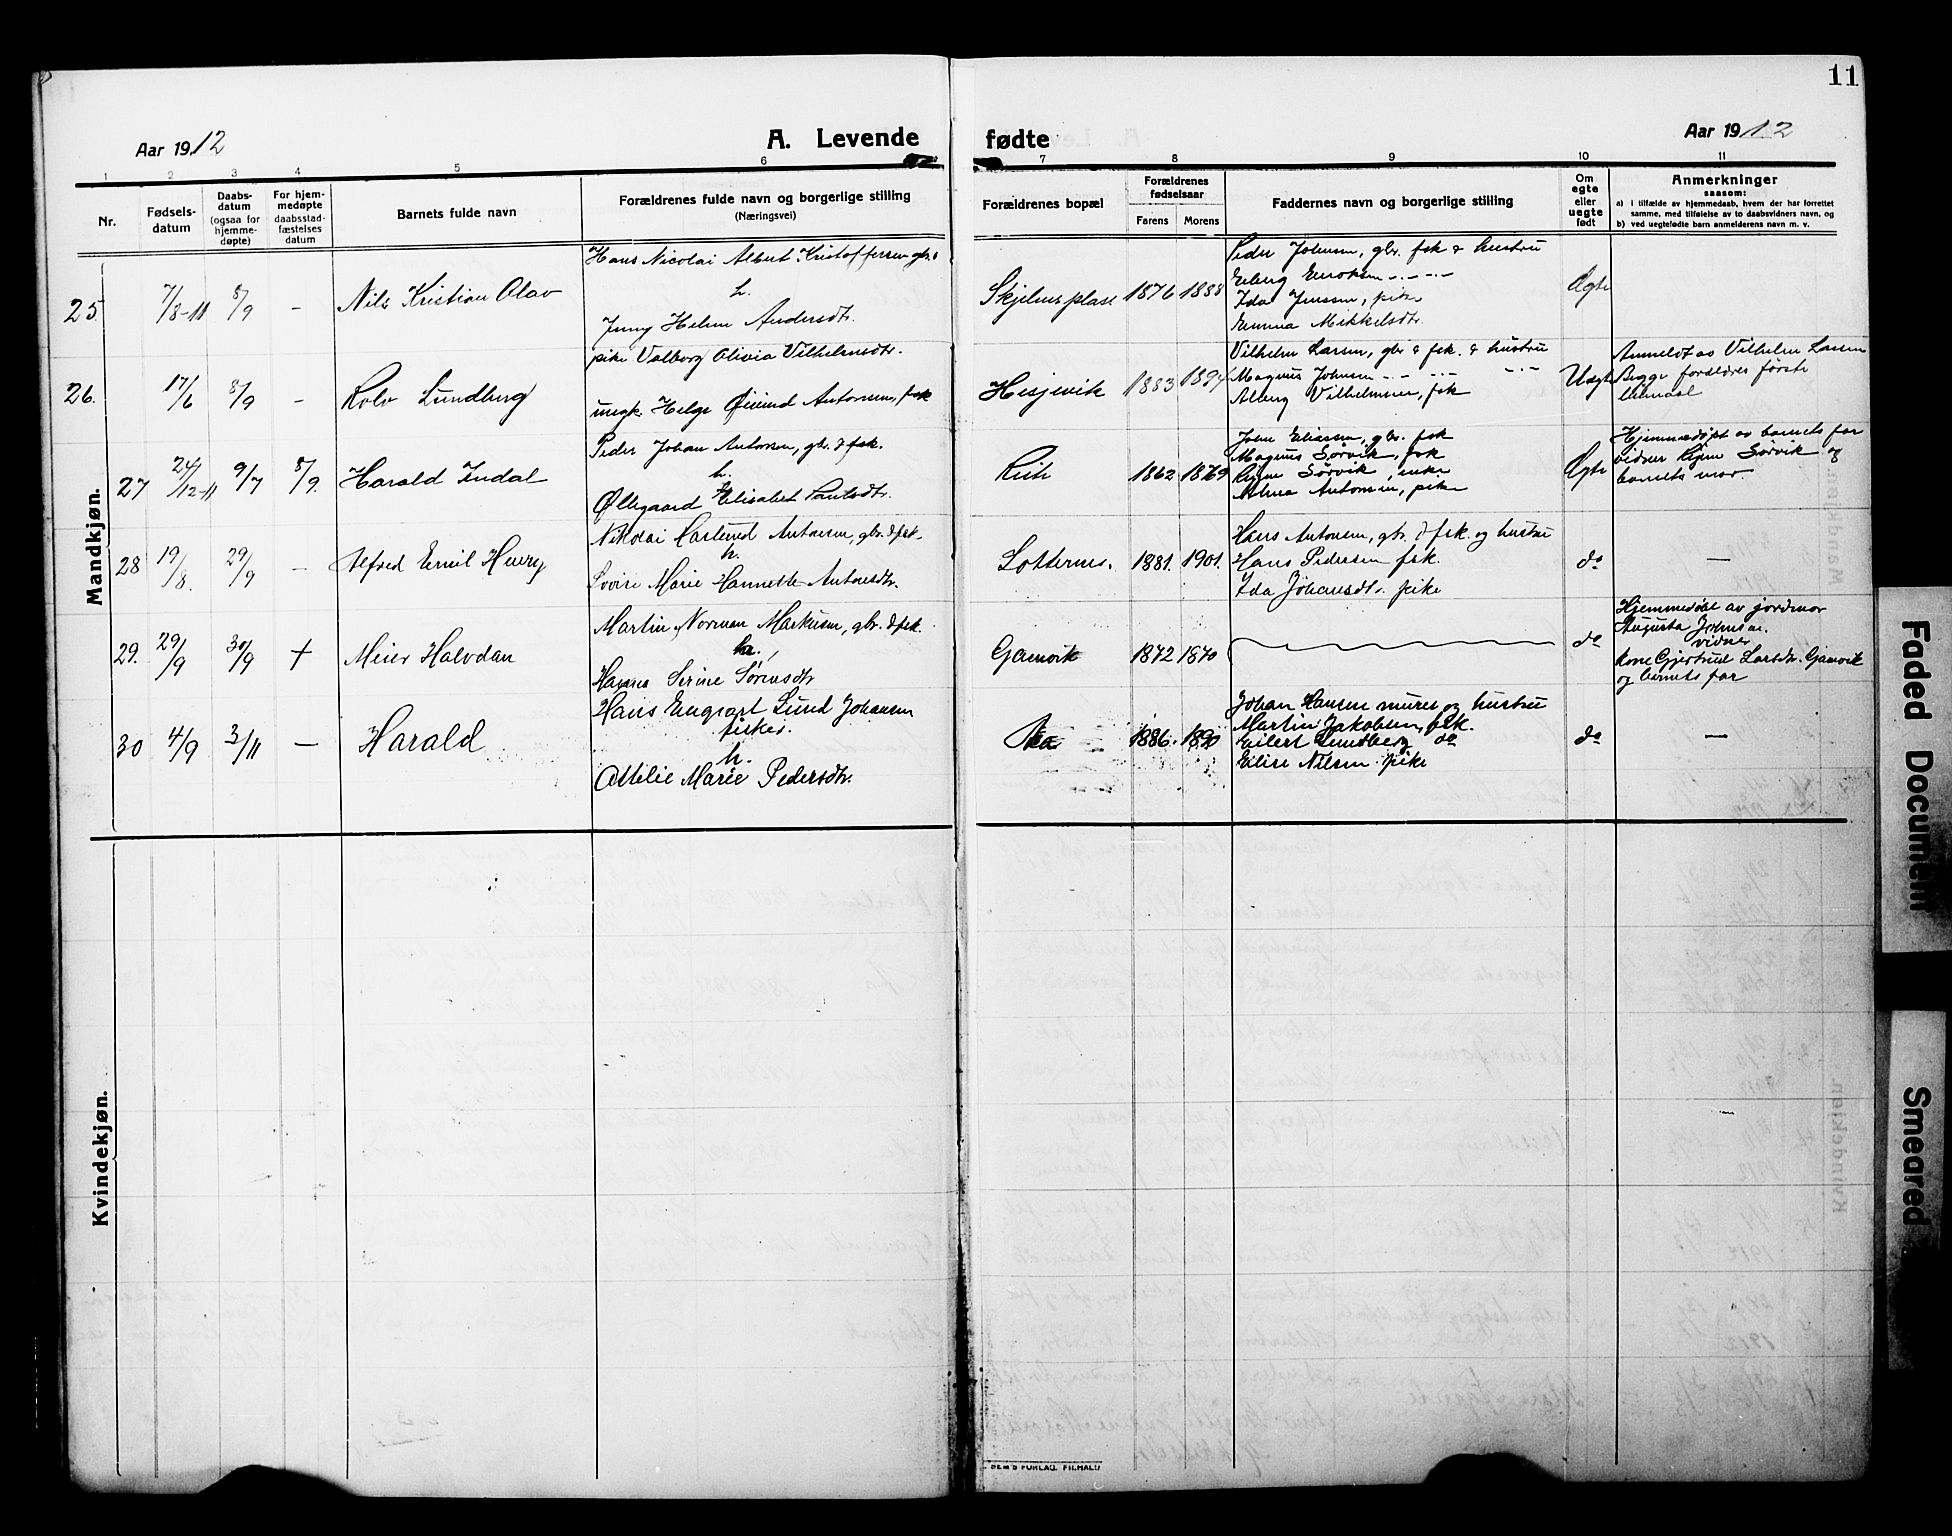 11
Aar 1912
A. Levende
fødte
Aar 1912
1 2 3 4 5 6 7 8 9 10 11
Nr.
Fødsels-
datum
Daabs-
datum
(ogsaa for
hjemme-
døpte)
For hjem-
medøpte
daabsstad-
fæstelses
datum
Barnets fulde navn
Forældrenes fulde navn og borgerlige stilling
(Næringsvei)
Forældrenes bopæl
Forældrenes
fødselsaar
Farens Morens
Faddernes navn og borgerlige stilling
Om
egte
eller
uegte
født
Anmerkninger
saasom:
a) i tilfælde av hjemmedaab, hvem der har forrettet
samme, med tilføielse av to daabsvidners navn, og
b) ved uegtefødte barn anmelderens navn m. v.
Mandkjøn.
25 7/8-11 8/9 - Nils Kristian Olav
Hans Nicolai Albert Kristoffersen gbr.
h.
Jenny Helene Andersdtr.
Skjelnesplass 1876 1888
Peder Johnsen, gbr. fsk & hustru
Erberg Enoksen -.-.-
Ida Jenssen, pike
Emma Mikkelsdtr.
Øgte
26. 17/6 8/9 - Rolv Lundberg
pike Valborg Olivia Vilhelmsdtr.
ungk. Helge Øivind Antonsen, fsk
Hesjevik 1883 1894
Vilhelm Larsen, gbr & fsk. & hustru
Magnus Johnsen -.- -.- -.-
Alberg Vilhelmsen, fsk
Uægte
Anmeldt av Vilhelm Larsen
Begge forældres første
leiermaal
27 24/12-11 9/7 8/9. Harald Indal
Peder Johan Antonsen, gbr. & fsk.
h.
Øllegaard Elisabet Paulsdtr.
1862 1869
John Eliassen, gbr. fsk
Magnus Sørvik, fsk
Sørvik, enke
Alma Antonsen, pike
Øgte
Hjemmedøpt av barnets far
vidner Sørvik og
barnets mor.
28 19/8. 29/9 - Alfred Emil Henry
Nikolai Hartvid Antonsen, gbr. & fsk.
h.
Marie Hannette Antonsdtr.
Lotternes. 1881. 1901.
Hans Antonsen, gbr. & fsk. og hustru
Hans Pedersen fsk.
Ida Johansdtr. pike
do
—
29. 29/9 30/9 + Meier Halvdan
Martin Norman Markusen, gbr. & fsk.
h.
Hanna Serine Sørensdtr
Gamvik 1872 1870
do
Hjemmedøbt av jordmor
Augusta Johnsen.
vidner
kone Gjertrud Larsdtr. Gamvik
og barnets far
30 4/9 3/11 — Harald
Hans Engvart Lund Johansen
fisker.
h.
Ottelie Marie Pedersdtr.
1886. 1890
Johan Hansen murer og hustru
Martin Jakobsen, fsk.
Eilert Lundberg do
Elise Nilsen pike
do
—
Kvindekjøn.
Faded Document
Smeared